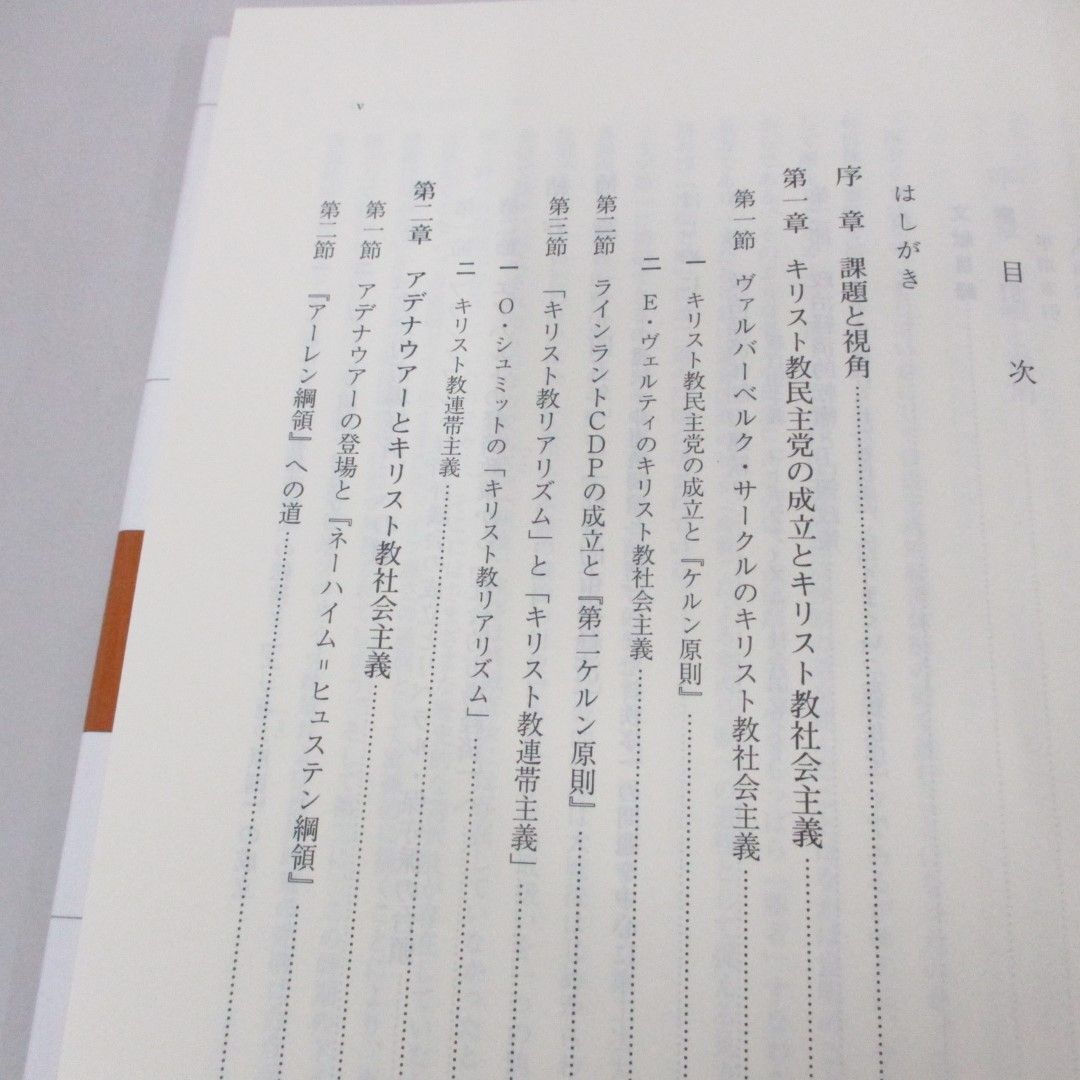 目次
はしがき
序章 課題と視角
第一章 キリスト教民主党の成立とキリスト教社会主義
第一節 ヴァルバーベルク・サークルのキリスト教社会主義
一 キリスト教民主党の成立と『ケルン原則』
二 E・ヴェルティのキリスト教社会主義
第二節 ラインラントCDPの成立と『第二ケルン原則』
第三節 「キリスト教リアリズム」と「キリスト教連帯主義」
一 O・シュミットの「キリスト教リアリズム」
二 キリスト教連帯主義
第二章 アデナウアーとキリスト教社会主義
第一節 アデナウアーの登場と『ネーハイム＝ヒュステン綱領』
第二節 『アーレン綱領』への道
v